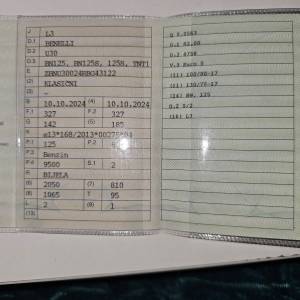 J L3
D.1 BENELLI
D.2 U30
D.3 BN125, BN125S, 125S, TNT1
E
(2) KLASIČNI
(3) -
B 10.10.2024 (4) 10.10.2024
F.1 327 F.2 327
G 142 (5) 185
K e13*168/2013*00275*04
P.1 125 P.2
P.3 Benzin
P.4 9500 S.1 2
R BIJELA
(6) 2050 (7) 810
(8) 1065 T 95
L 2 (9) 1
(13)
V.9 Euro 5
(11) 100/80-17
(11) 130/70-17
(14) BN, 125
(16) L3